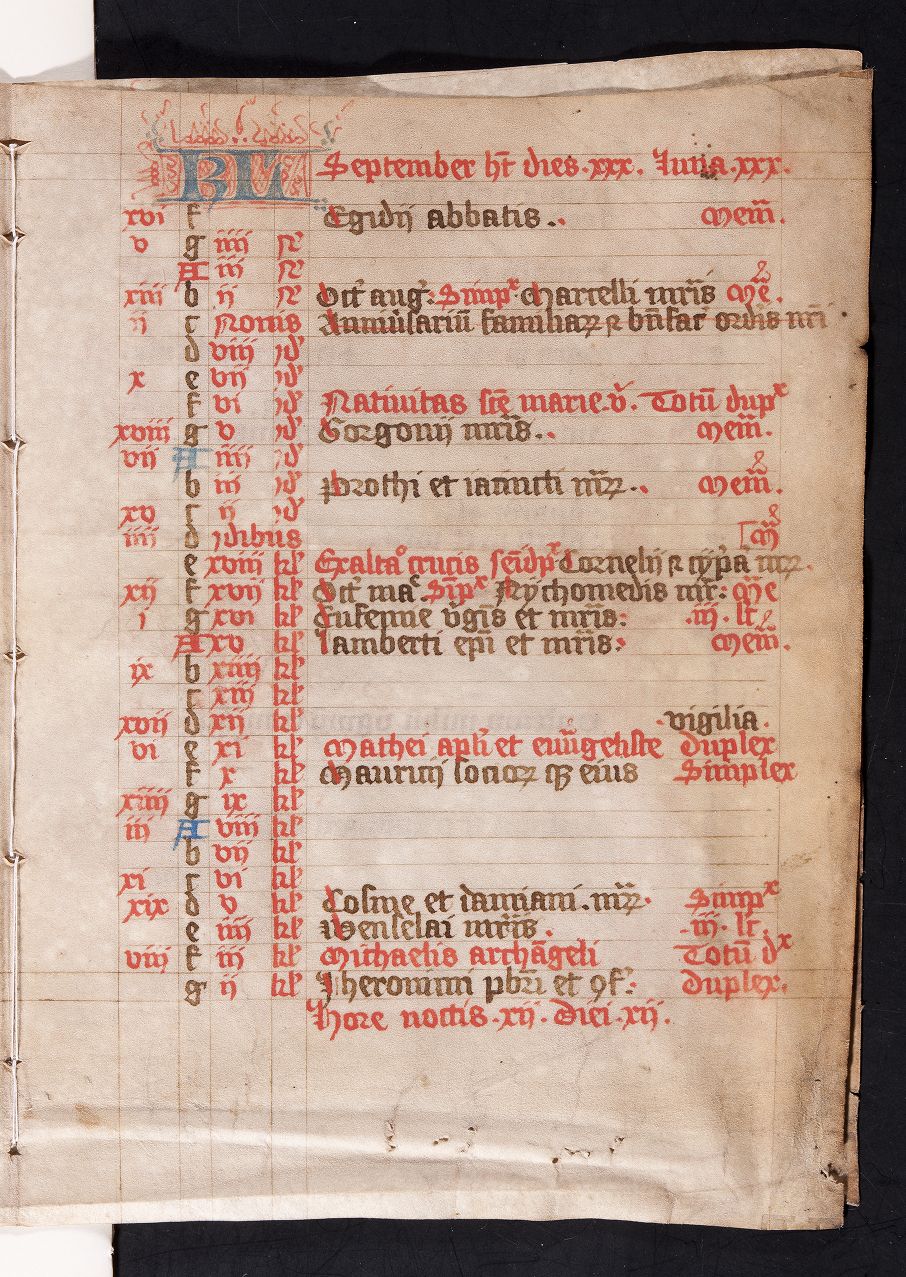 KL September ht̄ dies .xxx. Luna .xxx.
xvi f Egidij abbatis .. Mem̄.
v g iiij no
A iii no
xiii b ij no Oct̄ aug: Simpx Marcelli mr̄is Me̅.
ij c Nonis Anniu̕sariū familiaꝝ ⁊ bn̄fac̄ ordis nr̄i
d viij id
x e vij id
f vi id Natiuitas sc̄e marie v̄. Totū dupx
xviii g v id Gorgonij mr̄is .. Mem̄.
vij A iiij id
b iii id Prothi et iacincti mr̄ꝝ .. Mem̄.
xv c ij id
iiij d idibus
e xviii kl Exaltao crucis sem̄dpx Cornelij ⁊ cyp̕a mrꝝ.
xij f xvij kl Oct̄ ma Sīpx Nychomedis mr̄: Me
i g xvi kl Eufemie v̕gīs et mr̄is: .iij. lc̄
A xv kl Lamberti ep̄i et mr̄is: Mem̄.
ix b xiiij kl
c xiii kl
xvij d xij kl .vigilia.
vi e xi kl Mathei apl̄i et euūgeliste duplex
f x kl Mauricij socioꝝ qȝ eius Simplex
xiiij g ix kl
iii A viii kl
b vij kl
xi c vi kl
xix d v kl Cosme et damiani .mr̄ꝝ. Simpx
e iiij kl Wenselai mr̄is. .iij. lc̄.
viii f iii kl Michaelis archāgeli Totū dx
g ij kl Jheronimi pbr̄i et ꝯf̕: duplex.
Hore noctis .xij. Diei .xij.